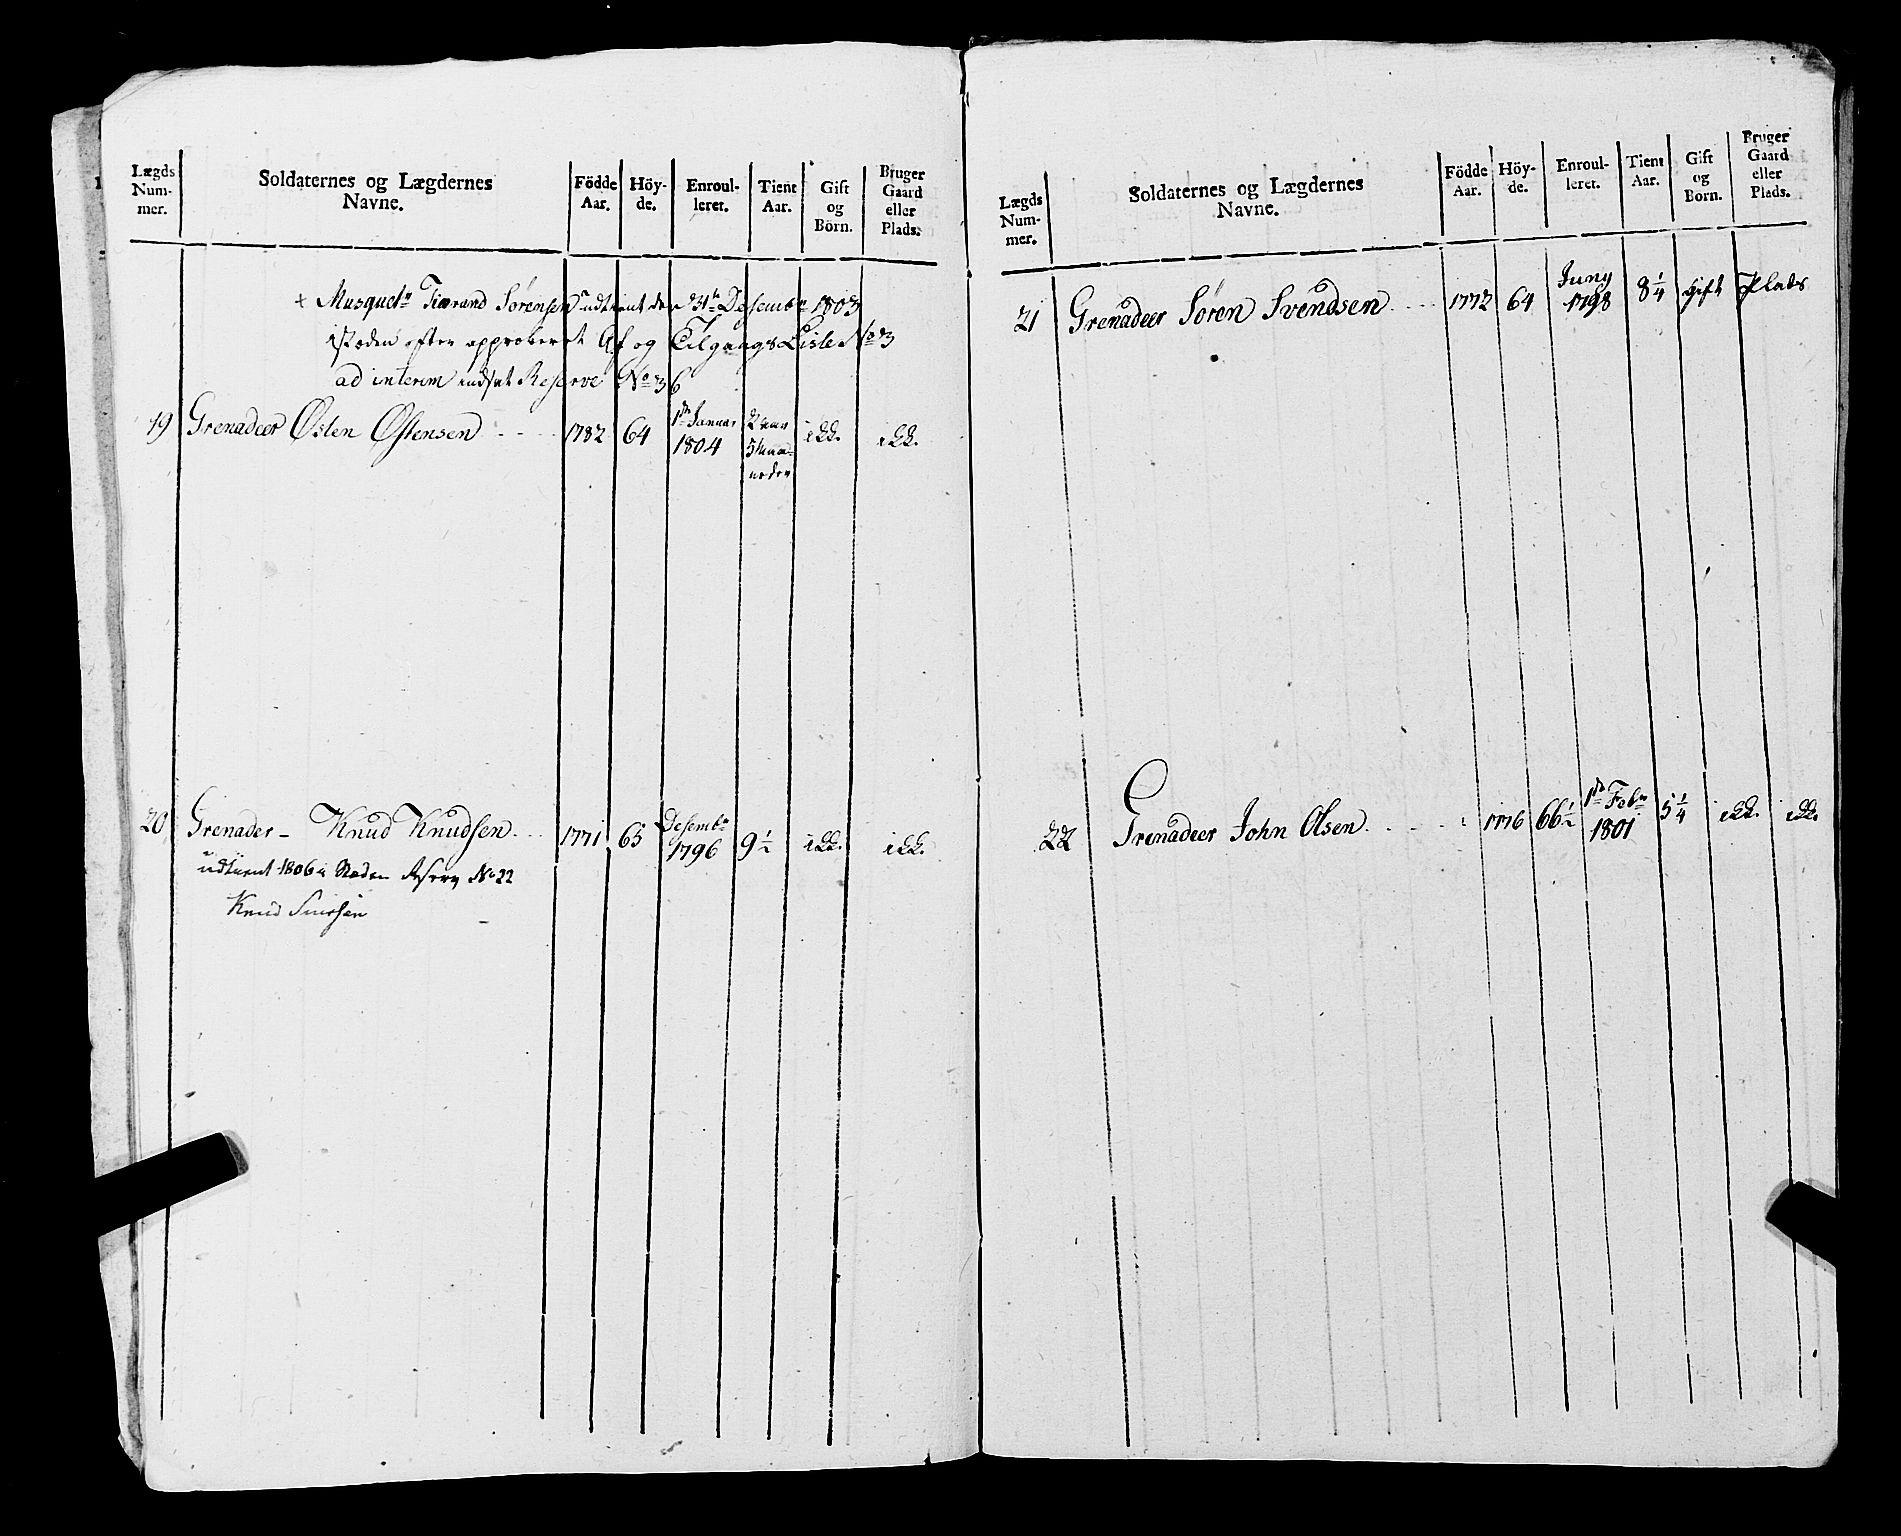 Lægds Num- mer.
Soldaternes og Lægdernes Navne.
Födde Aar.
Höy- de.
Enroul- leret.
Tient Aar.
Gift og Börn.
Bruger Gaard eller Plads.
+ Musquetr Tiærand Sørensen udtient den 31te Desembr 1803
istæden efter approberet Af og Tilgangs Liste No 3
ad interim indsat Reserve No 36
19 Grenadeer Østen Østensen 1782 64 1te Januar 1804 2 aar 5 maa- neder ikk. ikk.
20 Grenader - Knud Knudsen 1771 65 Desembr 1796 9 1/2 ikk. ikk.
udtient 1806 i Stæden Reserv No 22
Knud
Lægds Num- mer.
Soldaternes og Lægdernes Navne.
Födde Aar.
Höy- de.
Enroul- leret.
Tient Aar.
Gift og Börn.
Bruger Gaard eller Plads.
21 Grenadeer Søren Svendsen 1772 64 Juny 1798 8 1/4 gift Plads
22 Grenadeer John Olsen 1776 66 1/2 1te Febr 1801 5 1/4 ikk. ikk.